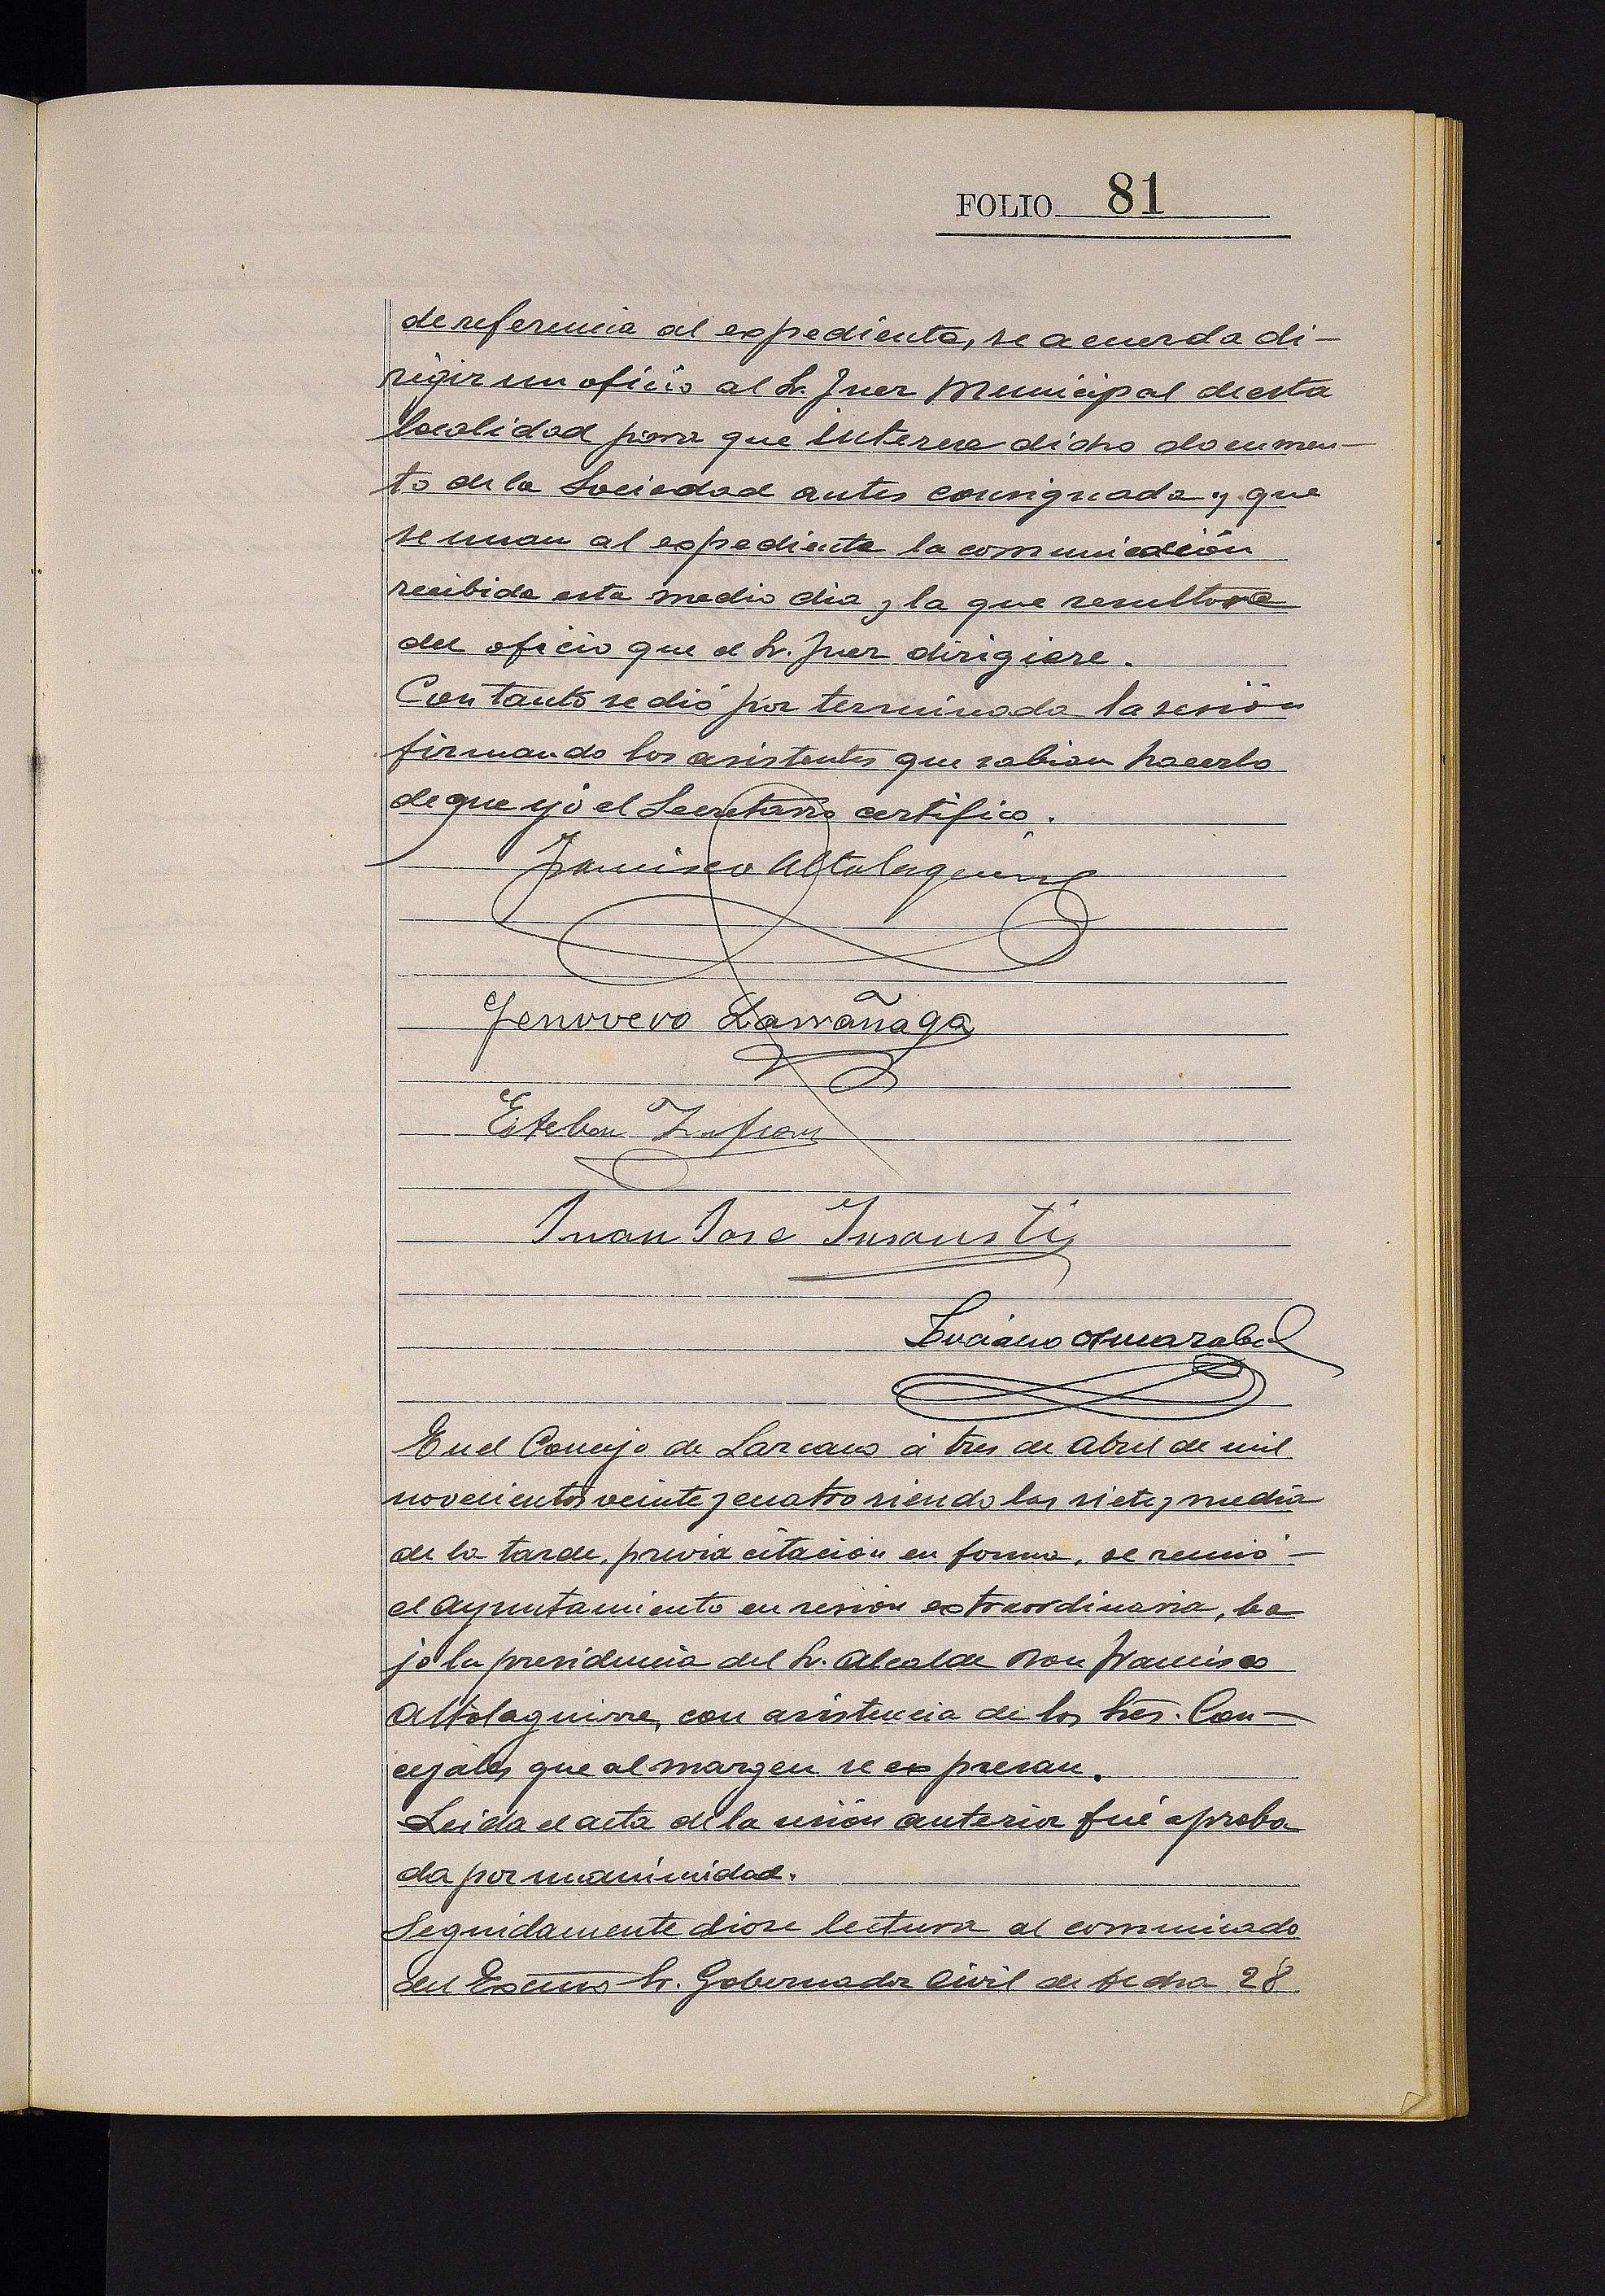 FOLIO 81
de referencia al expediente, se acuerda di-
rigir un oficio al Sr. Juez Municipal de esta
localidad para que interese dicho documen-
to de la Sociedad antes consignada y que
se unan al expediente la comunicación
recibida esta medio dia y la que resultare
del oficio que el Sr. Juez dirigiere.
Con tanto se dió por terminada la sesión
firmando los asistentes que sabian hacerlo
de que yó el Secretario certifico.
Francisco Altolaguirre
Jenovevo Larrañaga
Esteban
Juan Jose Insausti
Luciano
En el Concejo de Lazcano á tres de Abril de mil
novecientos veinte y cuatro siendo las siete y media
de la tarde, previa citación en forma, se reunió
el Ayuntamiento en sesión extraordinaria, ba
jo la presidencia del Sr. Alcalde Don Francisco
Altolaguirre, con asistencia de los Sres. Con-
cejales que al margen se expresan.
Leida el acta de la sesión anterior fué aproba
da por unanimidad.
Seguidamente diose lectura al comunicado
del Excmo Sr. Gobernador Civil de fecha 28